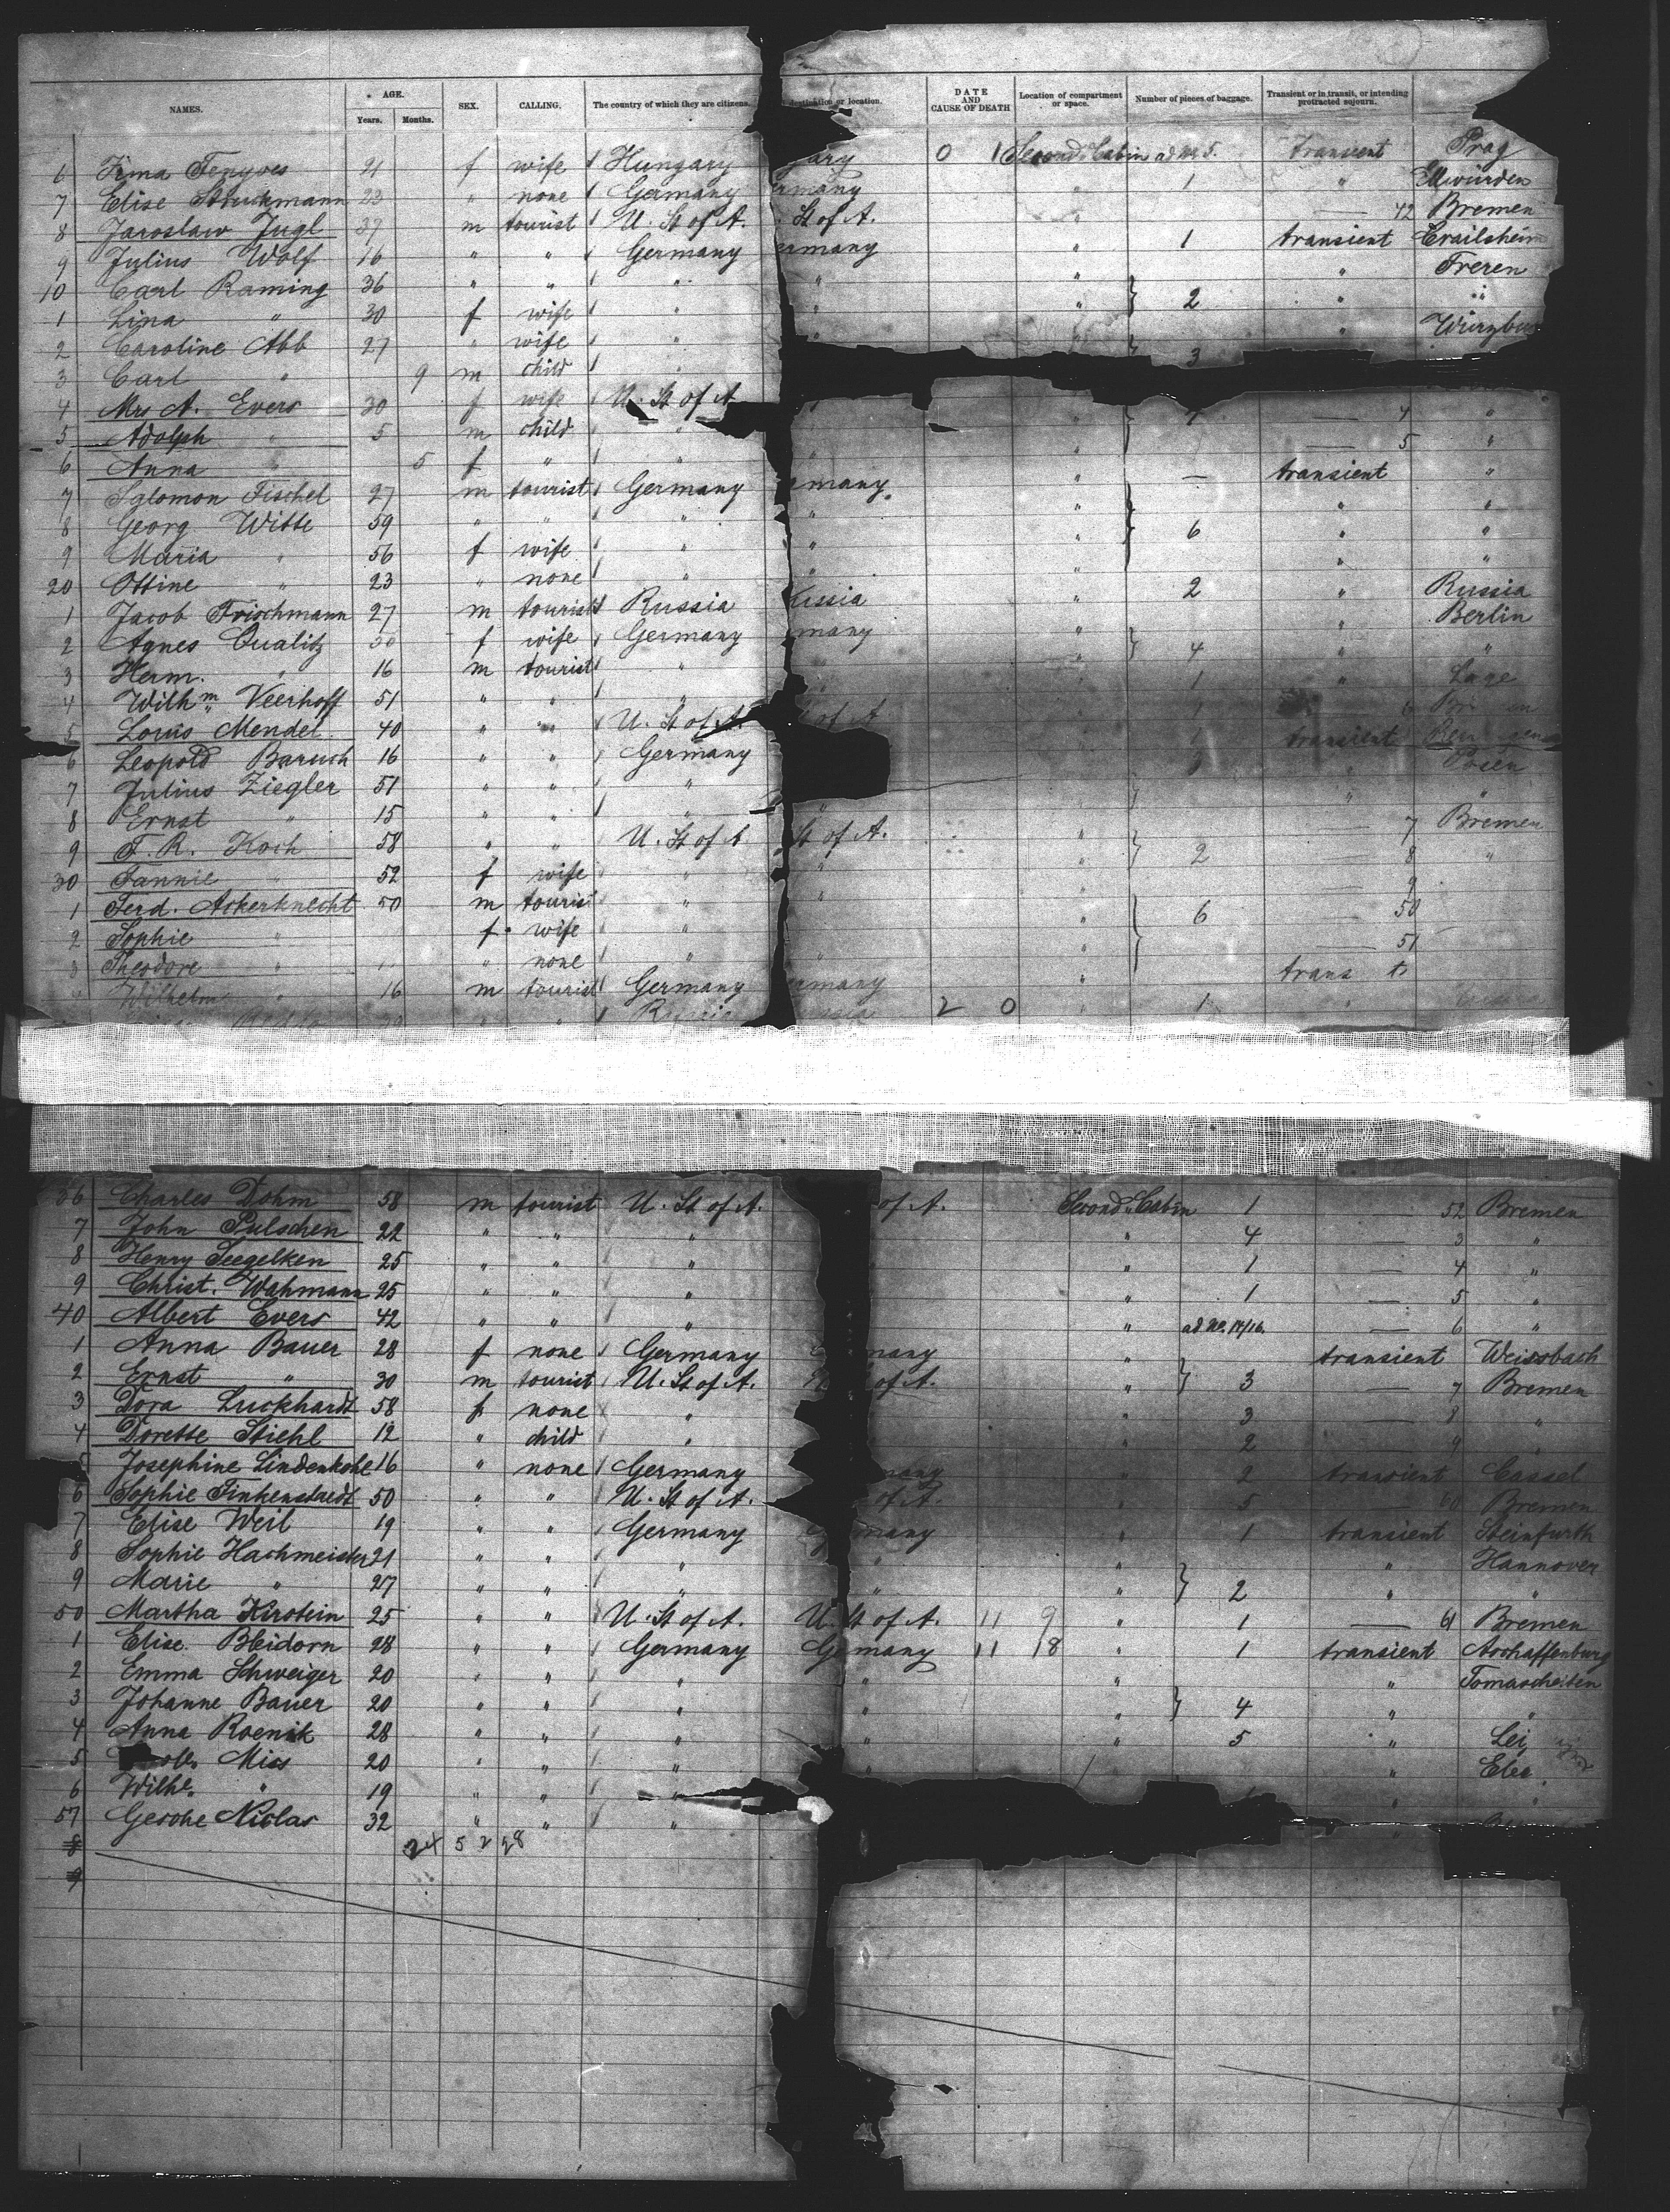 NAMES. AGE. Years. Months. SEX. CALLING. The country of which they are citizens. destination or location. DATE AND CAUSE OF DEATH Location of compartment or space. Number of pieces of baggage. Transient or in transit, or intending protracted sojourn.
6 Irma Fenyves 21 f wife Hungary gary 0 1 Second Cabin ad No 5. transient Prag
7 Elise 23 " none Germany ermany " 1 " Ellwürden
8 Jaroslaw Jugl 37 m tourist U. St of A. St of A. " — 42 Bremen
9 Julius Wolf 16 " " Germany ermany " 1 transient Crailsheim
10 Carl Raming 36 " " " " " " Freren
1 Lina " 30 f wife " " " 2 " "
2 Caroline Abb 27 " wife " " " " Würzbu
3 Carl " 9 m child " 3
4 Mrs A. Evers 30 f wife U. St of A
5 Adolph " 5 m child " " 7 4 "
6 Anna " 5 f " " " — 5 "
7 Salomon Fischel 27 m tourist Germany many " — transient "
8 Georg Witte 59 " " " " " " "
9 Maria " 56 f wife " " " 6 " "
20 Ottine " 23 " none " " " " "
1 Jacob Frischmann 27 m tourist Russia ussia " 2 " Russia
2 Agnes Qualitz 30 f wife Germany many " " Berlin
3 Herm. " 16 m tourist " " " 4 " "
4 Wilhm Veerhoff 51 " " " " 1 " Lage
5 Louis Mendel 40 " " U. St of A. of A 1
6 Leopold Baruch 16 " " Germany 1 transient
7 Julius Ziegler 51 " " " " Posen
8 Ernst " 15 " " " " " "
9 F. R. Koch 58 " " U. St of A St of A. " — 7 Bremen
30 Fannie " 52 f wife " " " 2 — 8 "
1 Ferd. Ackerknecht 50 m tourist " " — 9
2 Sophie " f wife " " 6 — 50
3 Theodore " " none " " " — 51
Wilhelm " 16 m tourist Germany ermany " trans t
Russia 2 0 " 1
36 Charles Dohm 58 m tourist U. St of A. of A. Second Cabin 1 — 52 Bremen
7 John Pulschen 22 " " " " 4 — 3 "
8 Henry Seegelken 25 " " " " 1 — 4 "
9 Christ. Wahmann 25 " " " " 1 — 5 "
40 Albert Evers 42 " " " " ad No. 14/16. — 6 "
1 Anna Bauer 28 f none Germany many " transient Weissbach
2 Ernst " 30 m tourist U. St of A. of A. " 3 — 7 Bremen
3 Dora Luckhardt 58 f none " " 3 — 8 "
4 Dorette Stiehl 12 " child " " 2 — 9 "
Josephine Lindenkohl 16 " none Germany many " 2 transient Cassel
6 Sophie Finkenstaedt 50 " " U. St of A. of A. " 5 — 60 Bremen
7 Elise Weil 19 " " Germany G many " 1 transient Steinfurth
8 Sophie Hachmeister 21 " " " " " " Hannover
9 Marie " 27 " " " " " 2 " "
50 Martha Kirstein 25 " " U. St of A. U. St of A. 11 9 " 1 — 61 Bremen
1 Elise Bleidorn 28 " " Germany Germany 11 18 " 1 transient Aschaffenburg
2 Emma Schweiger 20 " " " " " " Tomascheiten
3 Johanne Bauer 20 " " " " " 4 " "
4 Anna Roenik 28 " " " " " 5 " Lei
5 Miss 20 " " " " " Ele
6 Wilhe. " 19 " " " "
57 Gesche Niclas 32 " " "
8 24 5 2 28
9